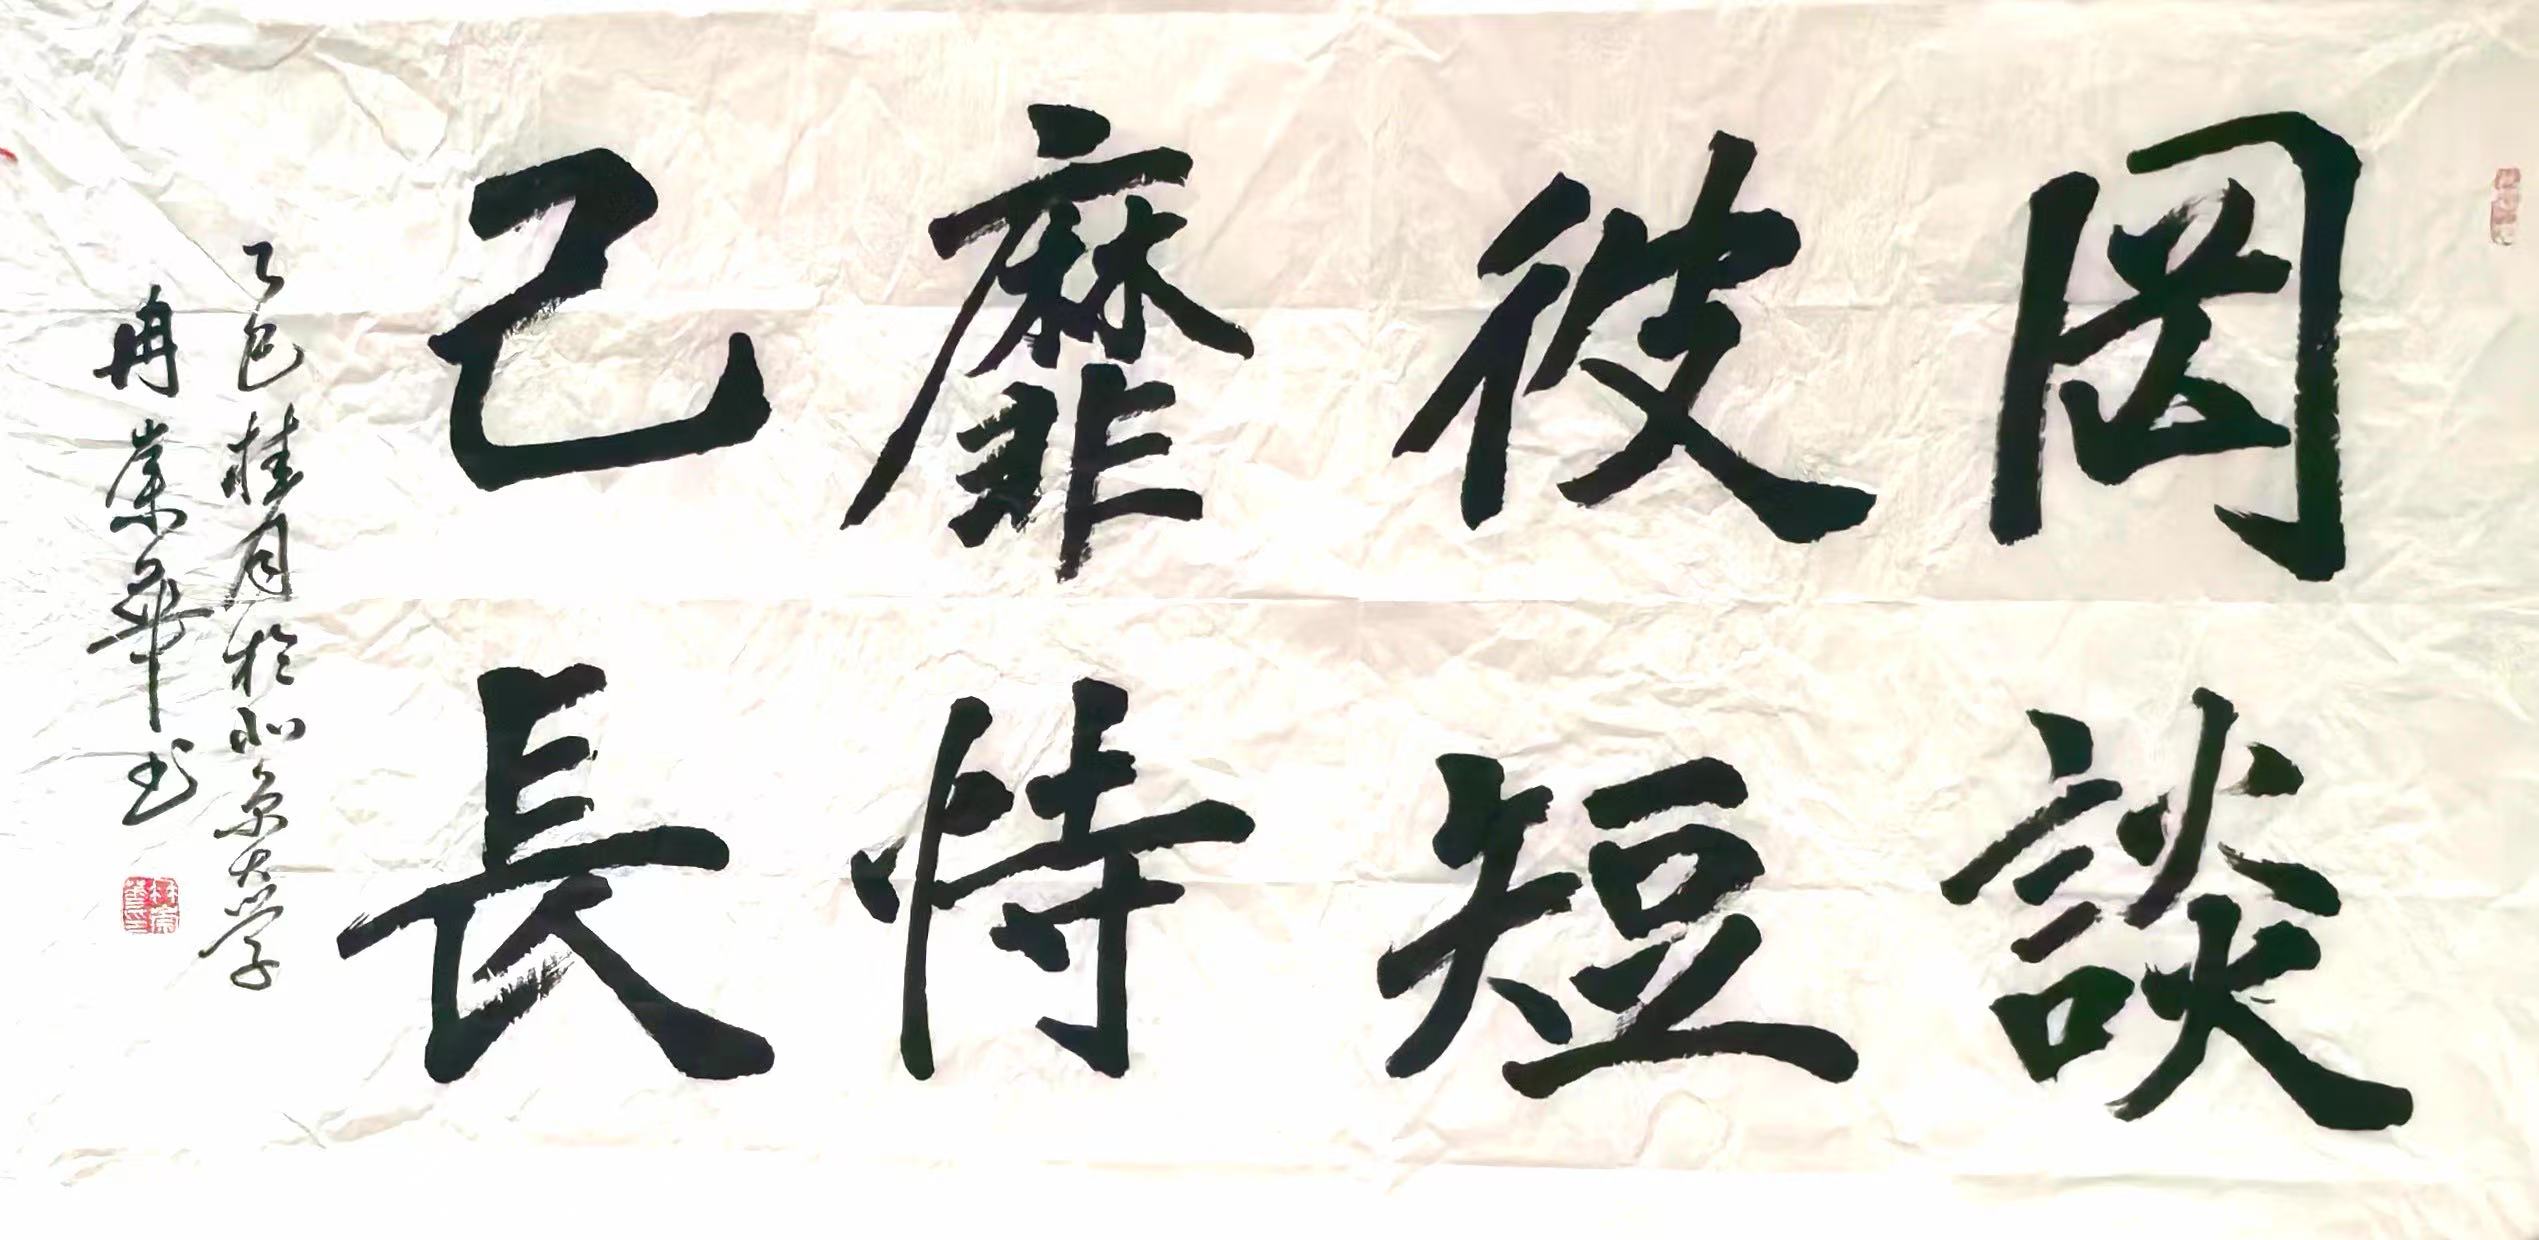 罔談
彼短
靡恃
己長
乙巳桂月於北京大学
冉崇華书